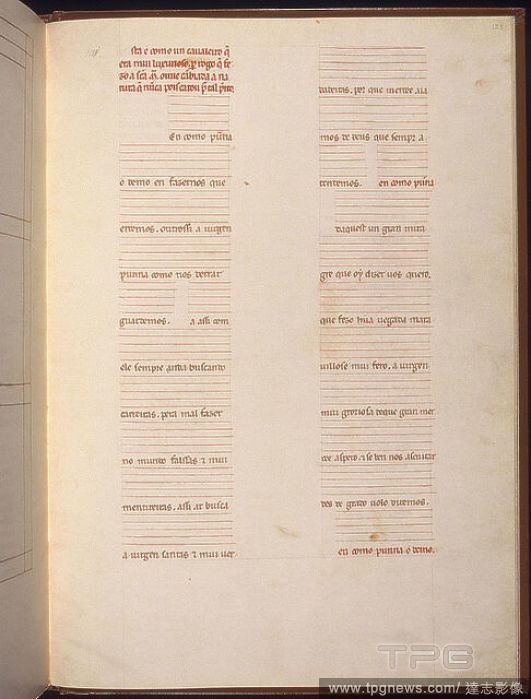 sta e como un caualeiro q̃
era mui luxurioso, rogo q̃ fe
zo a sc̃a M̃. ouue cãbiada a na
tura q̃ nũca pois catou
En como pũna
o demo en fazernos que
erremos. outrossi a uirgen
punna como nos derrar
guardemos. a assi com
ele sempre anda buscando
carreiras. pera mal fazer
no mundo falssas ⁊ mui
mentireiras. assi ar busca
a uirgen santas ⁊ mui uer
128
dadeiras. por que merçee aia
mos de deus que sempr a
tendemos. en como pũna
daquest un gran mira
gre que oý dizer uos quero.
que fezo hũa uegada mara
uillose mui fero. a uirgen
mui groriosa
aspero. ⁊ se ben nos ascuitar
des de grado uolo diremos.
en como punna o demo.
TPG
www.tpgnews.com / 達志影像